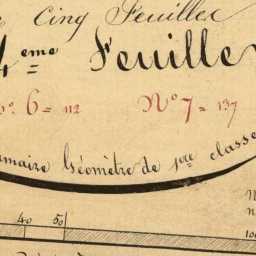 Cinq Feuilles
4eme Feuille
No. 6 = 112 No 7 = 137
Géomètre de 1ère classe
40 50